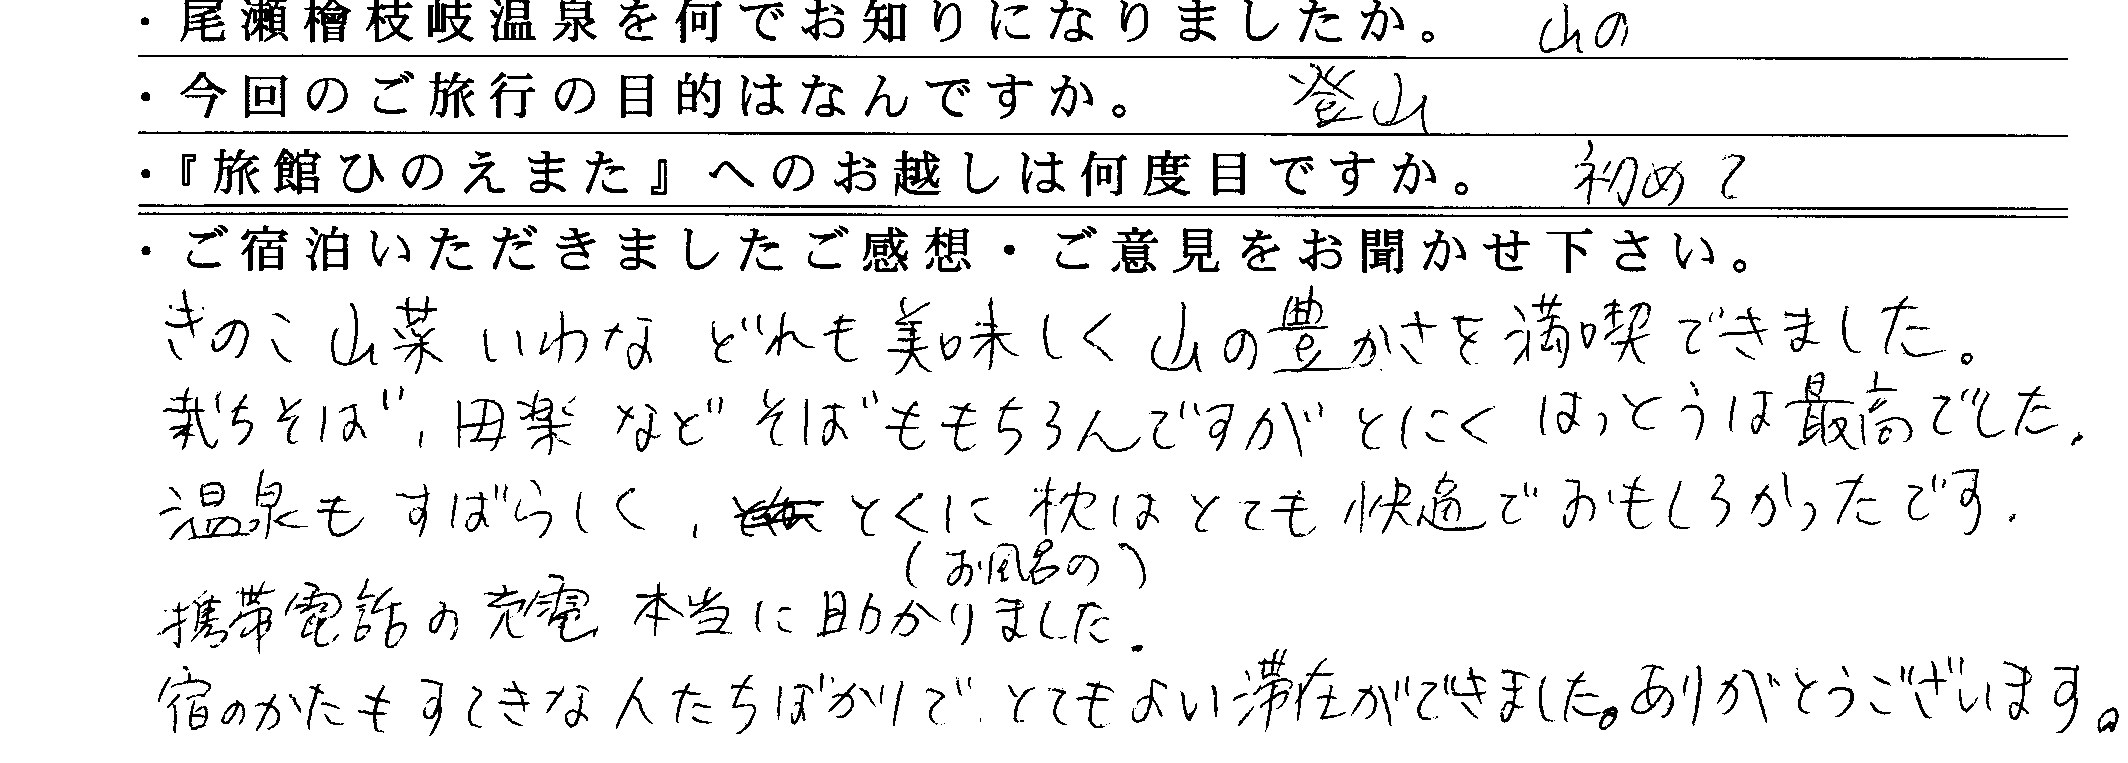 ・尾瀬檜枝岐温泉を何でお知りになりましたか。 山の
・今回のご旅行の目的はなんですか。 登山
・『旅館ひのえまた』へのお越しは何度目ですか。 初めて
・ご宿泊いただきましたご感想・ご意見をお聞かせ下さい。
きのこ 山菜 いわな どれも美味しく 山の豊かさを満喫できました。
裁ちそば、田楽 など そばももちろんですが とにく はっとうは最高でした.
温泉も すばらしく、とくに 枕は とても 快適で おもしろかったです.
(お風呂の)
携帯電話の充電 本当に助かりました.
宿のかたも すてきな人たちばかりで とてもよい滞在ができました。ありがとうございます。